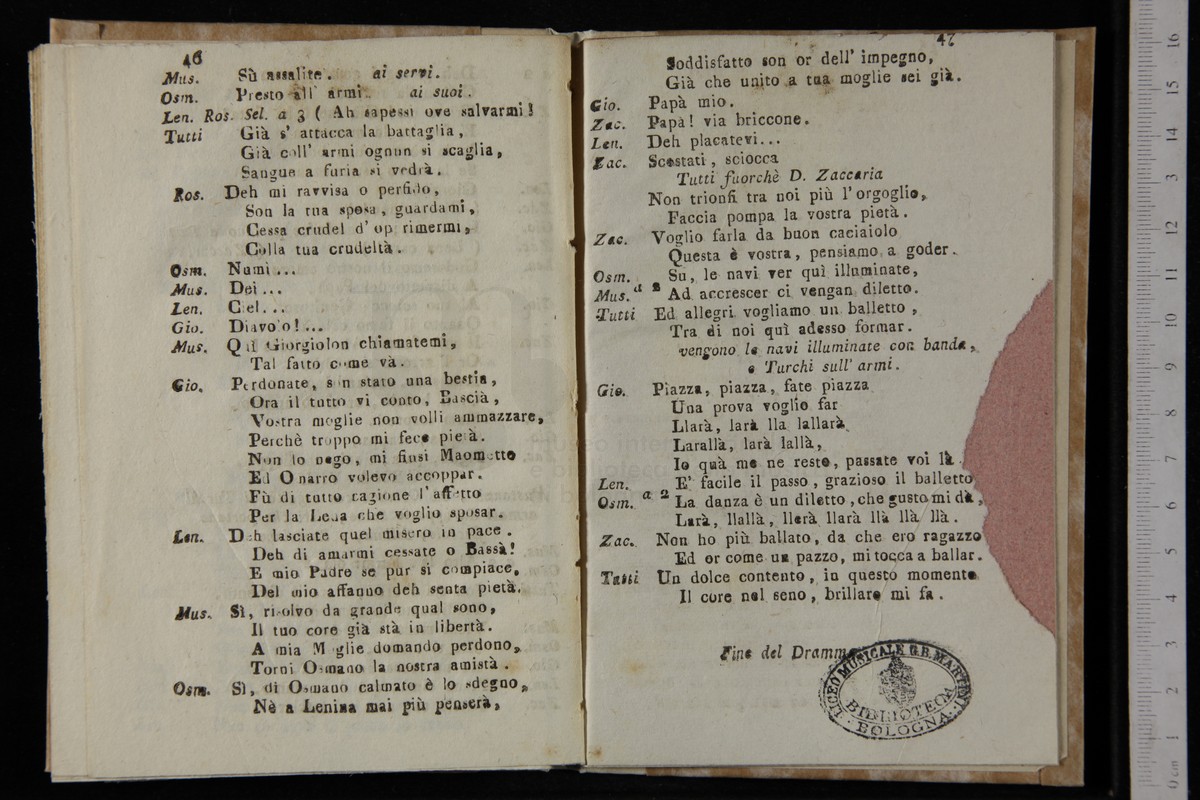 46
Mus. Sù assalite. ai servi.
Osm. Presto all' armi. ai suoi.
Len. Ros. Sel. a 3 ( Ah sapessi ove salvarmi!
Tutti Già s' attacca la battaglia,
Già coll' armi ognun si scaglia,
Sangue a furia si vedrà.
Ros. Deh mi ravvisa o perfido,
Son la tua sposa, guardami,
Cessa crudel d' opprimermi,
Colla tua crudeltà.
Osm. Numi...
Mus. Dei...
Len. Ciel...
Gio. Diavolo!...
Mus. Quì Giorgiolon chiamatemi,
Tal fatto come và.
Gio. Perdonate, son stato una bestia,
Ora il tutto vi conto, Bascià,
Vostra moglie non volli ammazzare,
Perchè troppo mi fece pietà.
Non lo nego, mi finsi Maometto
Ed Onarro volevo accoppar.
Fù di tutto cagione l' affetto
Per la Lena che voglio sposar.
Len. Deh lasciate quel misero in pace.
Deh di amarmi cessate o Bassà!
E mio Padre se pur si compiace,
Del mio affanno deh senta pietà.
Mus. Sì, risolvo da grande qual sono,
Il tuo core già stà in libertà.
A mia Moglie domando perdono,
Torni Osmano la nostra amistà.
Osm. Sì, di Osmano calmato è lo sdegno,
Nè a Lenina mai più penserà,
47
Soddisfatto son or dell' impegno,
Già che unito a tua moglie sei già.
Gio. Papà mio.
Zac. Papà! via briccone.
Len. Deh placatevi...
Zac. Scostati, sciocca
Tutti fuorchè D. Zaccaria
Non trionfi tra noi più l' orgoglio,
Faccia pompa la vostra pietà.
Zac. Voglio farla da buon caciaiolo
Questa è vostra, pensiamo a goder.
Osm. Su, le navi ver quì illuminate,
Mus. a 2 Ad accrescer ci vengan diletto.
Tutti Ed allegri vogliamo un balletto,
Tra di noi quì adesso formar.
vengono le navi illuminate con banda,
e Turchi sull' armi.
Gio. Piazza, piazza, fate piazza
Una prova voglio far
Llarà, larà lla lallarà
Larallà, larà lallà,
Io quà me ne resto, passate voi là.
Len. E' facile il passo, grazioso il balletto
Osm. a 2 La danza è un diletto, che gusto mi dà,
Larà, llallà, llerà llarà llà llà llà.
Zac. Non ho più ballato, da che ero ragazzo
Ed or come un pazzo, mi tocca a ballar.
Tutti Un dolce contento, in questo momento
Il core nel seno, brillare mi fa.
Fine del Dramma
LICEO MUSICALE G.B. MARTINI
BIBLIOTECA
BOLOGNA